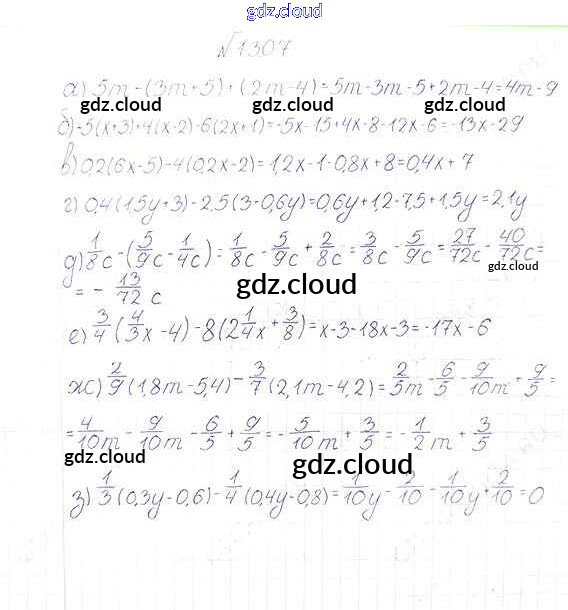 gdz.cloud
№1307
а) 5m - (3m + 5) + (2m - 4) = 5m - 3m - 5 + 2m - 4 = 4m - 9
gdz.cloud gdz.cloud gdz.cloud
б) -5(x+3)+4(x-2)-6(2x+1)=-5x-15+4x-8-12x-6=-13x-29
в) 0,2(6x-5)-4(0,2x-2)=1,2x-1-0,8x+8=0,4x+7
gdz.cloud gdz.cloud gdz.cloud
г) 0,4(1,5y+3)-2,5(3-0,6y)=0,6y+1,2-7,5+1,5y=2,1y
д) 1/8c - (5/9c - 1/4c) = 1/8c - 5/9c + 2/8c = 3/8c - 5/9c = 27/72c - 40/72c =
gdz.cloud
= - 13/72 c
gdz.cloud
е) 3/4 (4/3x - 4) - 8(2 1/4x + 3/8) = x - 3 - 18x - 3 = -17x - 6
gdz.cloud
ж) 2/9 (1,8m - 5,4) - 3/7 (2,1m - 4,2) = 2/5m - 6/5 - 9/10m + 9/5 =
gdz.cloud gdz.cloud
= 4/10m - 9/10m - 6/5 + 9/5 = - 5/10m + 3/5 = - 1/2m + 3/5
gdz.cloud
з) 1/3 (0,3y - 0,6) - 1/4 (0,4y - 0,8) = 1/10y - 2/10 - 1/10y + 2/10 = 0
gdz.cloud gdz.cloud